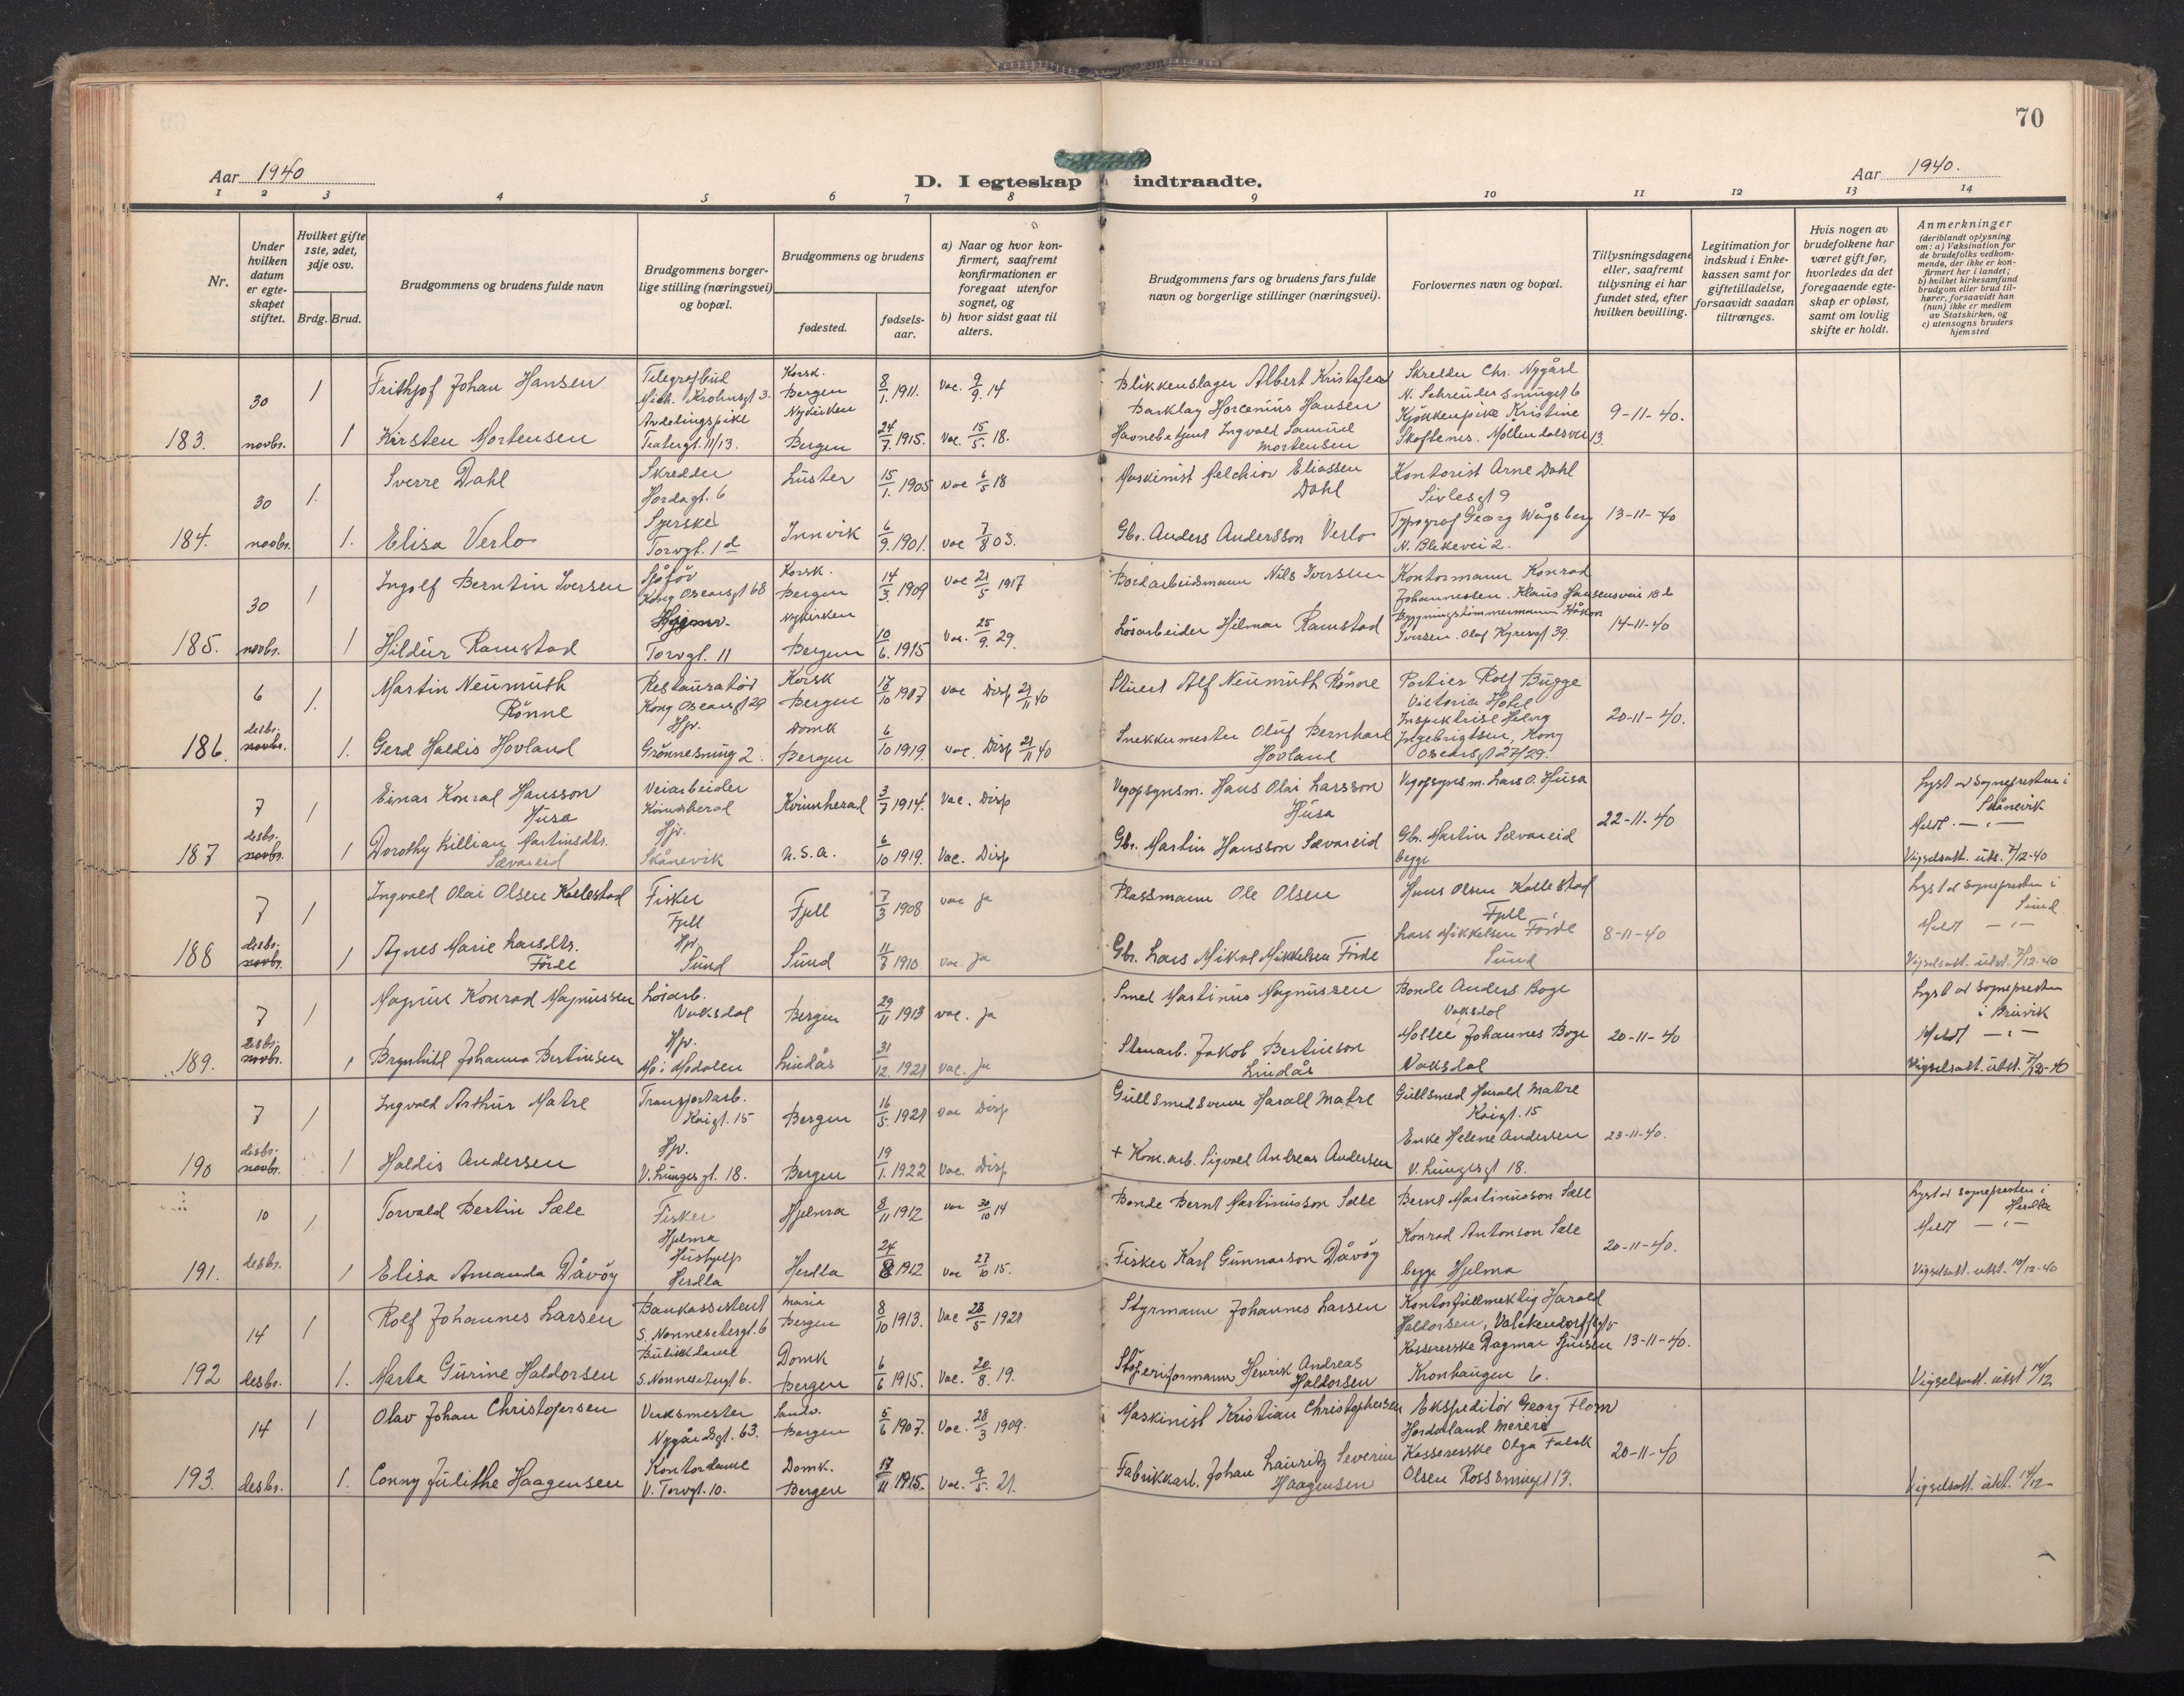 70
Aar 1940
D. I egteskap indtraadte.
Aar 1940.
1 2 3 4 5 6 7 8 9 10 11 12 13 14
Nr.
Under hvilken datum er egteskapet stiftet.
Hvilket gifte 1ste, 2det, 3dje osv.
Brdg. Brud.
Brudgommens og brudens fulde navn
Brudgommens borgerlige stilling (næringsvei) og bopæl.
Brudgommens og brudens
fødested.
fødselsaar.
a) Naar og hvor konfirmert, saafremt konfirmationen er foregaat utenfor sognet, og
b) hvor sidst gaat til alters.
Brudgommens fars og brudens fars fulde navn og borgerlige stillinger (næringsvei).
Forlovernes navn og bopæl.
Tillysningsdagene eller, saafremt tillysning ei har fundet sted, efter hvilken bevilling.
Legitimation for indskud i Enkekassen samt for giftetilladelse, forsaavidt saadan tiltrænges.
Hvis nogen av brudefolkene har været gift før, hvorledes da det foregaaende egteskap er opløst, samt om lovlig skifte er holdt.
Anmerkninger
(deriblandt oplysning om: a) Vaksination for de brudefolks vedkommende, der ikke er konfirmert her i landet; b) hvilket kirkesamfund brudgom eller brud tilhører, forsaavidt han (hun) ikke er medlem av Statskirken, og c) utensogns bruders hjemsted
183. 30 novbr. 1 1
Frithjof Johan Hansen
Telegrafbud Mich. Krohnsgt 3.
Korsk. Bergen 8/1. 1911. Vac. 9/9. 14
Blikkenslager Albert Kristofer Barklay Hansen
Skredder Chr. Nygård
N. Schrøder smuget 6
Kirsten Mortensen
Avdelingspike Teatergt. 11/13.
Nykirken Bergen 24/7. 1915. Vac. 15/5. 18.
Havnebetjent Ingvald Samuel Mortensen
Kjøkkenpike Kristine
Skoftenes. Møllendalsvei 13
9-11-40.
184. 30 novbr. 1. 1.
Sverre Dahl
Skredder Hordagt. 6
Luster 15/1. 1905 vac 6/5 18
Maskinist Melchior Eliassen Dahl
Kontorist Arne Dahl
Sivlesgt 9
Elisa Verlo
Syerske Torvgt. 1 d
Innvik 6/9. 1901. vac 7/8 03.
Gbr. Anders Andersson Verlo
Typograf Georg Wågsberg
N. Blekevei 2.
13-11-40
185. 30 novbr. 1 1
Ingolf Berntin Iversen
Sjåfør Kong Oscarsgt 68
Korsk. Bergen 14/3. 1909 vac 21/5 1917
Bordarbeidsmann Nils Iversen
Kontormann Konrad
Johannessen. Klaus Hansensvei 18 b
Hildur Ramstad
Torvgt. 11
Nykirken Bergen 10/6. 1915 Vac. 25/9. 29.
Løsarbeider Hjelmar Ramstad
Bygningstømmermann Håkon
Iversen. Olaf Kyresgt 39.
14-11-40
186. 6 desbr. novbr. 1. 1.
Martin Neumuth Rönne
Restauratør Kong Oscarsgt 29
Korsk Bergen 17/10 1907 vac Disp 21/11 40
Stuert Alf Neumuth Rönne
Portier Rolf Bugge
Victoria Hotel
Gerd Haldis Hovland
Hjv. Grønnesmug 2.
Domk Bergen 6/10 1919. vac. Disp 21/11 40
Snekkermester Oluf Bernhard Hovland
Inspektrise Helvig
Ingebrigtsen, Kong
Oscarsgt 27/29.
20-11-40.
187 7 desbr. novbr. 1 1
Einar Konrad Hansson Husa
Veiarbeider Kvinnherad
Kvinnherad 3/7 1914. Vac. Disp
Vegopsynsm. Hans Olai Larsson Husa
Vegopsynsm. Lars O. Husa
Dorothy Killian Martinsdtr. Sævareid
Hjv. Skånevik
U.S.A. 6/10 1919. Vac. Disp
Gbr. Martin Hansson Sævareid
Gbr. Martin Sævareid
begge
22-11-40
Lyst av sognepresten i Skånevik
Meldt. — " —
Vigselsatt. uts. 7/12-40
188 7 desbr. novbr. 1 1
Ingvald Olai Olsen Kallestad
Fisker Fjell
Fjell 7/3 1908 vac ja
Plassmann Ole Olsen
Hans Olsen Kallestad
Fjell
Agnes Marie Larsdtr. Førde
Hjv. Sund
Sund 11/8 1910 vac. ja
Gbr. Lars Mikal Mikkelsen Førde
Lars Mikkelsen Førde
Sund
8-11-40
Lyst av sognepresten i Sund
Meldt — " —
Vigselsatt. utst. 7/12-40
189. 7 desbr. novbr. 1 1
Magnus Konrad Magnussen
Løsarb. Vaksdal
Bergen 29/11 1913 vac. ja
Smed Martinus Magnussen
Bonde Anders Boge
Vaksdal
Brynhild Johanna Bertinsen
Hjv. Mo i Modalen
Lindås 31/12. 1921 vac. ja
Stenarb. Jakob Bertinson Lindås
Møller Johannes Boge
Vaksdal
20-11-40
Lyst av sognepresten i Bruvik
Meldt — " —
Vigselsatt. utst. 7/12-40
190 7 desbr. novbr. 1 1
Ingvald Arthur Matre
Transportarb. Kaigt. 15
Bergen 16/5. 1921 vac Disp
Gullsmedsvenn Harald Matre
Gullsmed Harald Matre
Kaigt. 15
Haldis Andersen
Hjv. V. Lungesgt. 18.
Bergen 19/1. 1922 vac. Disp
+ Kom. arb. Sigvald Andreas Andersen
Enke Helene Andersen
V. Lungesgt 18.
23-11-40.
191. 10 desbr. 1 1
Torvald Bertin Sæle
Fisker Hjelma
Hjelma 8/11 1912 vac 30/10 14
Bonde Bernt Martinusson Sæle
Bernt Martinusson Sæle
Elisa Amanda Dåvøy
Hushjelp Herdla
Herdla 24/8 1912 vac 27/10 15.
Fisker Karl Gunnarson Dåvøy
Konrad Antonson Sæle
begge Hjelma
20-11-40.
Lyst av sognepresten i Herdla
Meldt — " —
Vigselsatt. utst. 10/12-40
192 14 desbr. 1 1.
Rolf Johannes Larsen
Bankassistent S. Nonnesetergt. 6
Maria Bergen 8/10 1913. Vac 23/5 1921
Styrmann Johannes Larsen
Kontorfullmektig Harald
Haldorsen, Valckendorffsgt 5
Marta Gurine Haldorsen
Butikkdame S. Nonnesetergt 6.
Domk Bergen 6/6 1915. Vac. 20/8. 19.
Støperiformann Henrik Andreas Haldorsen
Kassererske Dagmar
Kronhaugen 6.
13-11-40.
Vigselsatt. utst 14/12
193. 14 desbr. 1 1.
Olav Johan Christofersen
Verksmester Nygårdsgt. 63.
Sandv. Bergen 5/6 1907. Vac. 28/3 1909.
Maskinist Kristian Christophersen
Ekspeditør Georg Flom
Hordaland Meieri
Conny Julithe Haagensen
Kontordame V. Torvgt. 10.
Domk. Bergen 17/11 1915. Vac. 9/5. 21.
Fabrikkarb. Johan Lauritz Severin Haagensen
Kassererske Olga Falck
Olsen Rossesmuget 13.
20-11-40
Vigselsatt. utst. 14/12